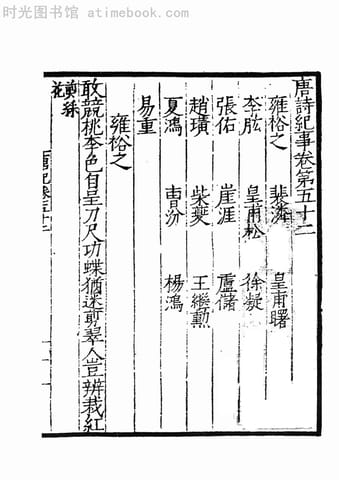 时光图书馆 - atimebook.com
唐詩紀事卷第五十二
雍裕之 裴潾 皇甫曙
李肱 皇甫松 徐凝
張佑 崔涯 盧儲
趙璜 柴夔 王繼勲
夏鴻 曹汾 楊鴻
易重
雍裕之
敢競桃李色自呈刀尺功蝶猶迷剪翠人豈辨裁紅
剪綵
花